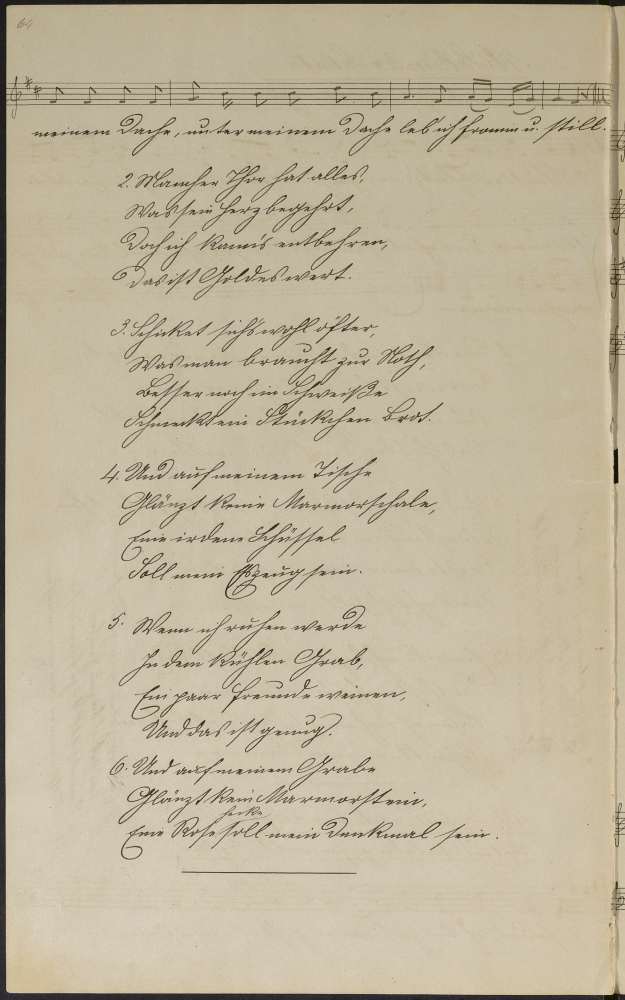 64
meinem Dache, unter meinem Dache leb' ich fromm u. still.
2. Mancher Thor hat alles,
Was sein Herz begehrt,
Doch ich kann's entbehren,
Das ist Goldes wert.
3. Schicket sich's wohl öfter,
Was man braucht zur Noth,
Besser noch im Schweiße
Schmeckt ein Stückchen Brot.
4. Und auf meinem Tische
Glänzt keine Marmorschale,
Eine irdene Schüssel
Soll mein Eßzeug sein.
5. Wenn ich ruhen werde
In dem kühlen Grab,
Ein paar Freunde weinen,
Und das ist genug.
6. Und auf meinem Grabe
Glänzt kein Marmorstein,
hecke
Eine Rose soll mein Denkmal sein.